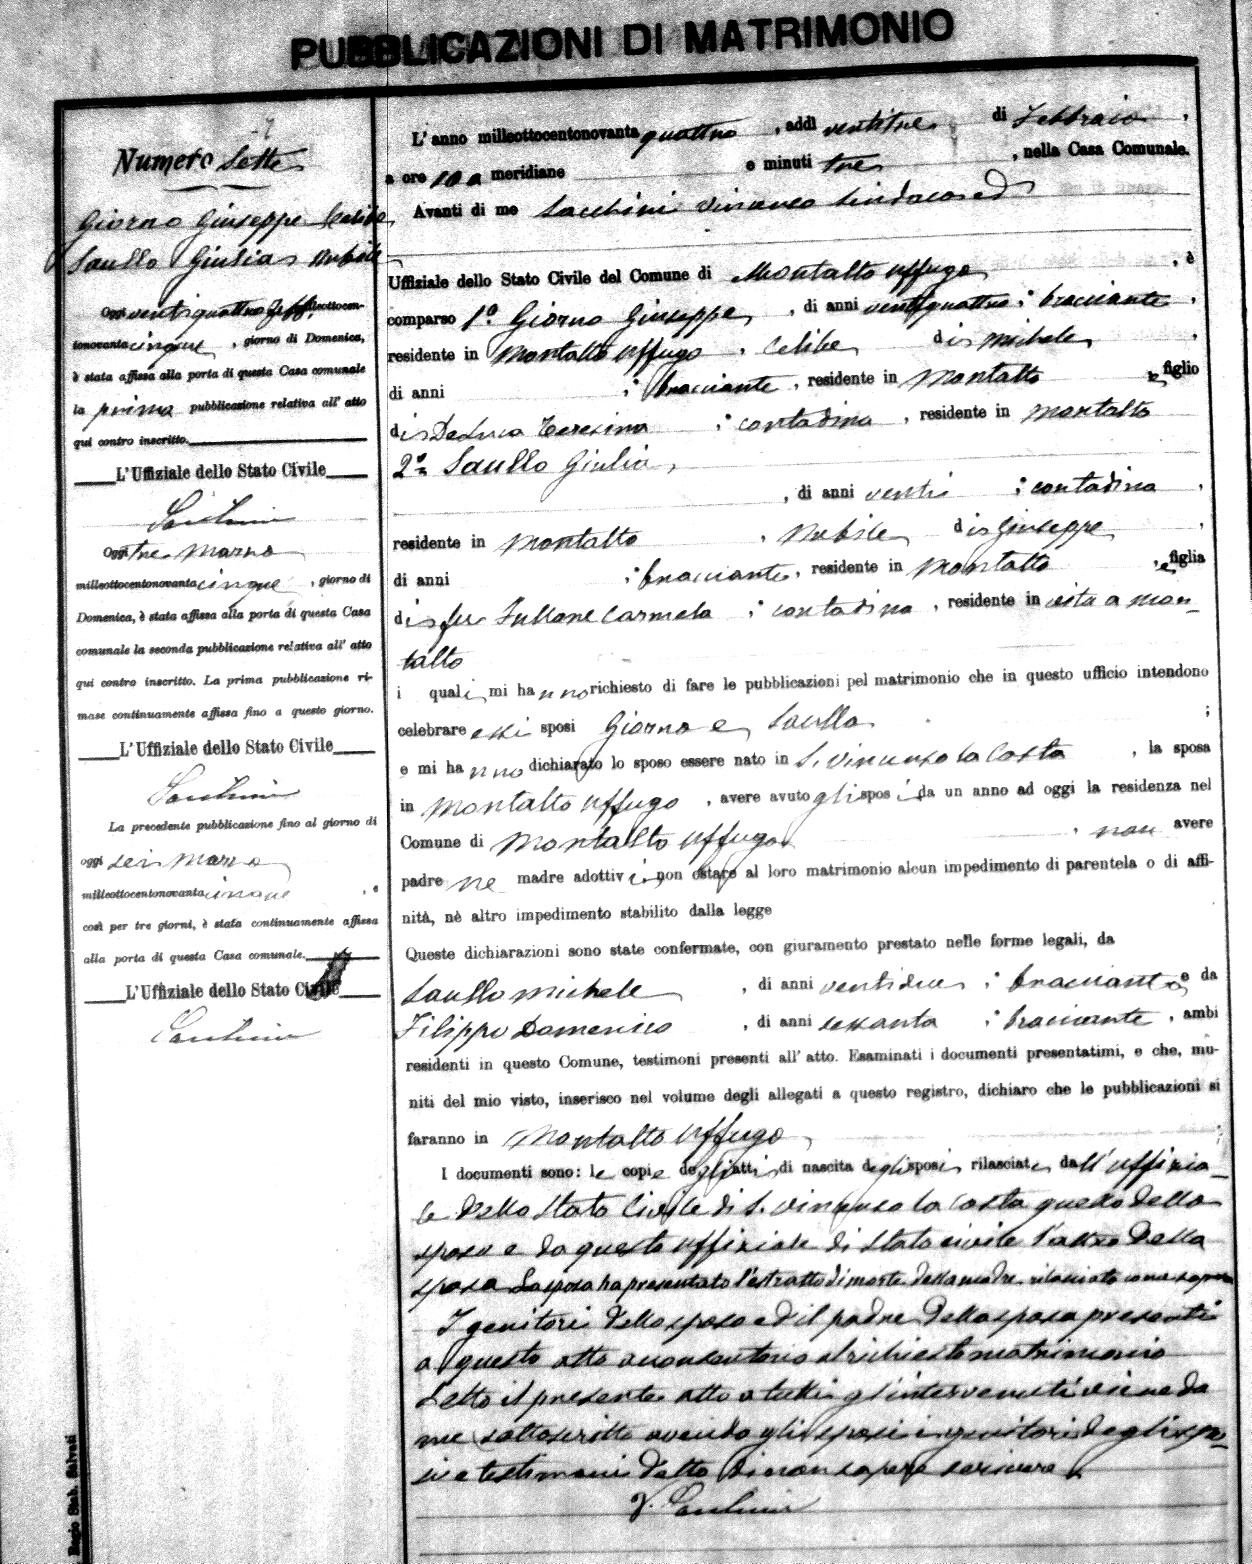 PUBBLICAZIONI DI MATRIMONIO
7
Numero Sette
Giorno Giuseppe Celibe
Saullo Giulia Nubile
Oggi ventiquattro Febb. milleottocen-
tonovantacinque, giorno di Domenica,
è stata affissa alla porta di questa Casa comunale
la prima pubblicazione relativa all' atto
qui contro inscritto.
L'Uffiziale dello Stato Civile
Sacchini
Oggi tre Marzo
milleottocentonovantacinque, giorno di
Domenica, è stata affissa alla porta di questa Casa
comunale la seconda pubblicazione relativa all' atto
qui contro inscritto. La prima pubblicazione ri-
mase continuamente affissa fino a questo giorno.
L'Uffiziale dello Stato Civile
Sacchini
La precedente pubblicazione fino al giorno di
oggi sei marzo
milleottocentonovantacinque, e
così per tre giorni, è stata continuamente affissa
alla porta di questa Casa comunale.
L'Uffiziale dello Stato Civile
Sacchini
Regio Stab. Salvati
L' anno milleottocentonovantaquattro, addì ventitre di Febbraio,
a ore 10 a meridiane e minuti tre, nella Casa Comunale.
Avanti di me Sacchini Vincenzo Sindaco ed
Uffiziale dello Stato Civile del Comune di Montalto Uffugo, è
comparso 1.° Giorno Giuseppe, di anni ventiquattro; bracciante,
residente in Montalto Uffugo, Celibe di Michele,
di anni ; bracciante, residente in Montalto e figlio
di DeLuca Teresina ; contadina, residente in Montalto
2.° Saullo Giulia,
, di anni venti ; contadina,
residente in Montalto, Nubile di Giuseppe,
di anni ; bracciante, residente in Montalto, e figlia
di fu Fullone Carmela ; contadina, residente in vita a Mon-
talto
i quali mi hanno richiesto di fare le pubblicazioni pel matrimonio che in questo ufficio intendono
celebrare essi sposi Giorno e Saullo ;
e mi hanno dichiarato lo sposo essere nato in S. Vincenzo la Costa, la sposa
in Montalto Uffugo, avere avuto gli sposi da un anno ad oggi la residenza nel
Comune di Montalto Uffugo, non avere
padre ne madre adottivi, non ostare al loro matrimonio alcun impedimento di parentela o di affi-
nità, nè altro impedimento stabilito dalla legge
Queste dichiarazioni sono state confermate, con giuramento prestato nelle forme legali, da
Saullo Michele, di anni ventidue ; bracciante e da
Filippo Domenico, di anni sessanta ; bracciante, ambi
residenti in questo Comune, testimoni presenti all' atto. Esaminati i documenti presentatimi, e che, mu-
niti del mio visto, inserisco nel volume degli allegati a questo registro, dichiaro che le pubblicazioni si
faranno in Montalto Uffugo
I documenti sono: le copie degli atti di nascita degli sposi rilasciate dall'uffizia-
le dello Stato Civile di S. Vincenzo la Costa quello dello
sposo e da questo uffiziale di Stato civile l'altro della
sposa La sposa ha presentato l'estratto di morte della madre rilasciato come sopra
I genitori dello sposo ed il padre della sposa presenti
a questo atto acconsentono al richiesto matrimonio
Letto il presente atto a tutti gl'intervenuti viene da
me sottoscritto avendo gli sposi i genitori degli spo-
si e testimoni detto di non sapere scrivere
V. Sacchini